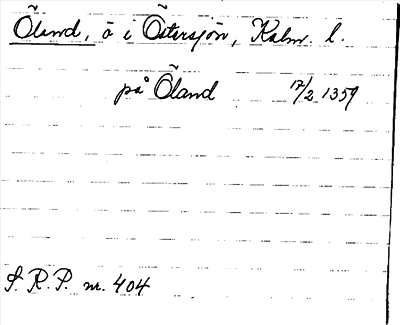 Öland, ö i Östersjön, Kalm. l.
på Öland 17/2 1359
S. R. P. nr. 404